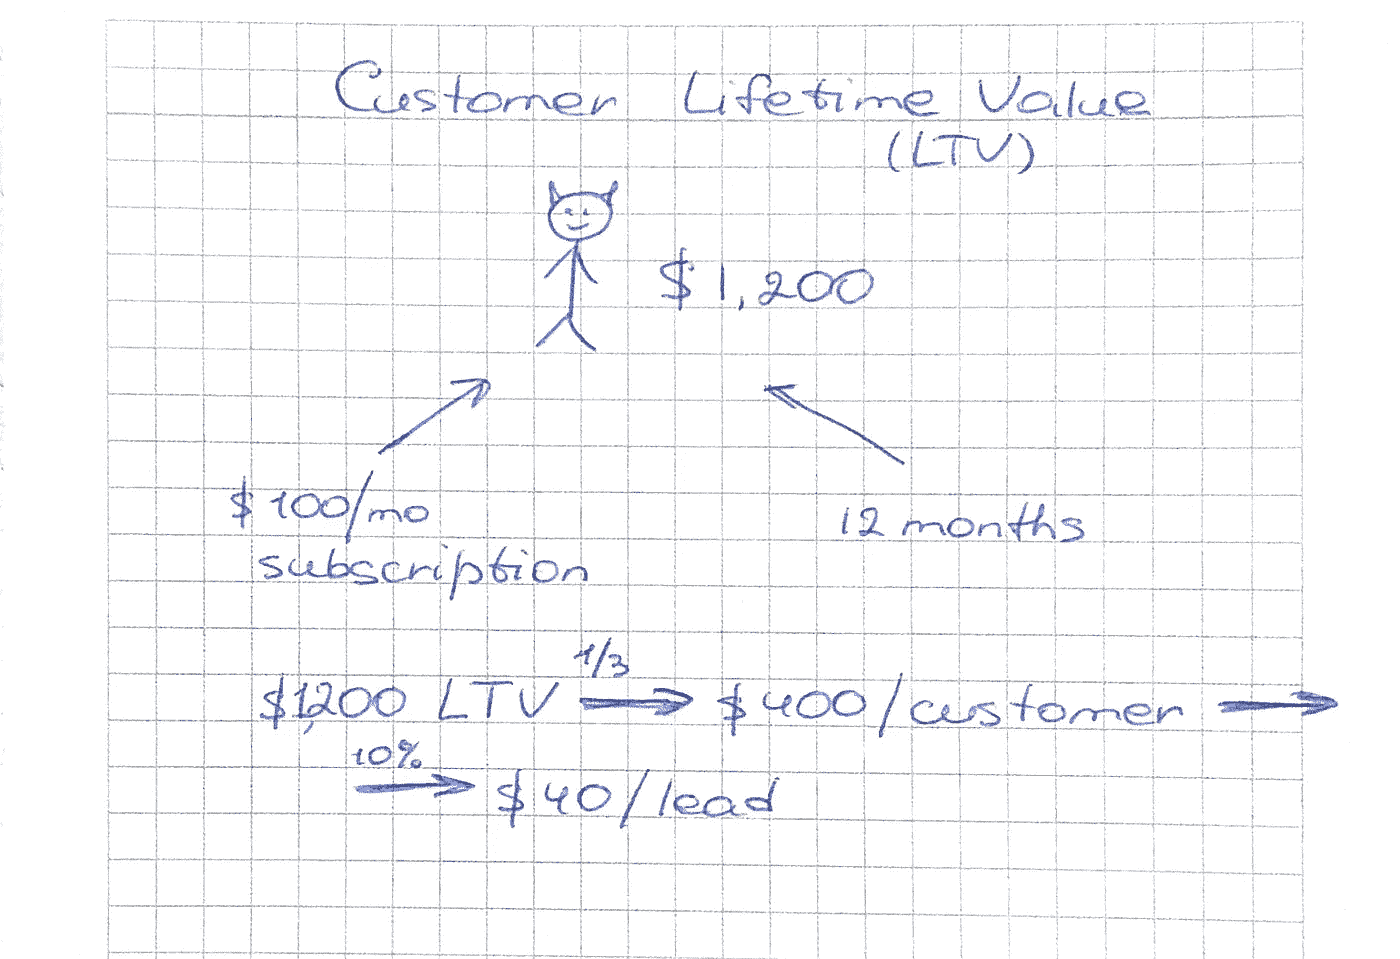 Customer Lifetime Value
(LTV)
$1,200
$100/mo
subscription
12 months
$1,200 LTV 1/3 $400/customer
10% $40/lead